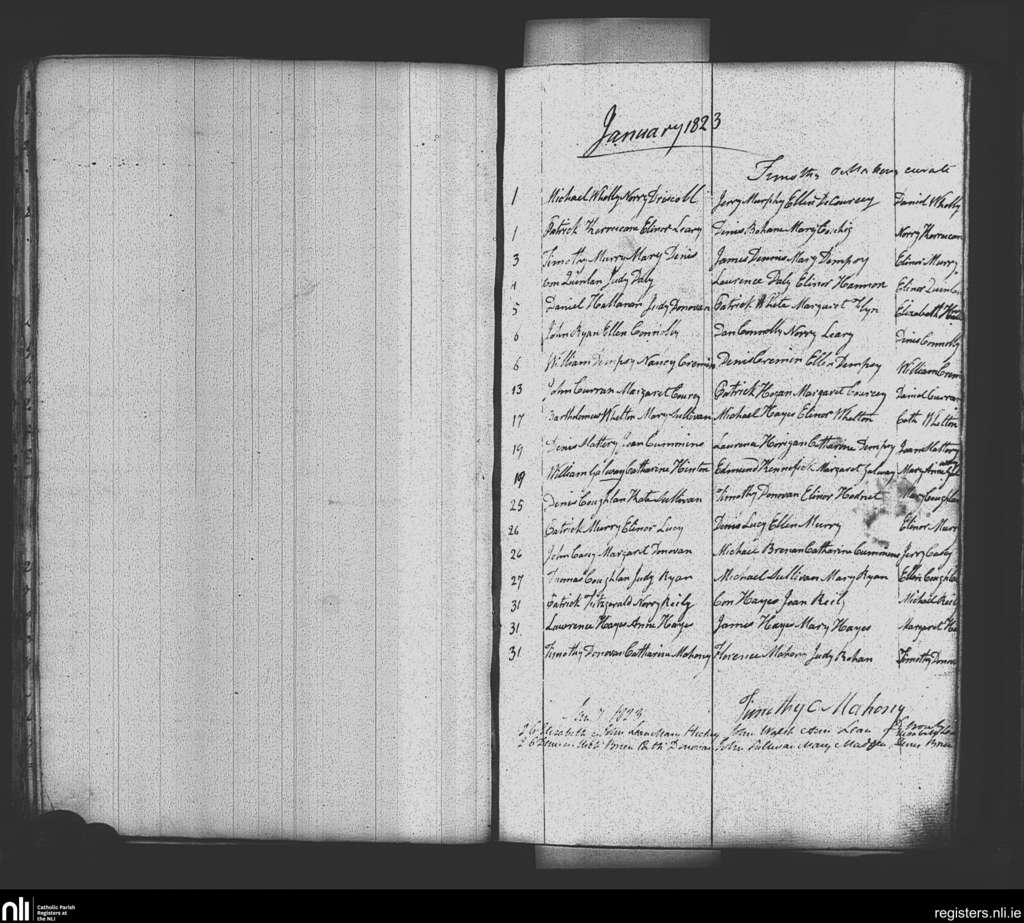 January 1823
Timothy O Mahony curate
1 Michael Wholly Norry Driscoll Jerry Murphy Ellen DeCourcey Daniel Wholly
1 Patrick Kerrucan Elinor Leary Denis Bohane Mary Norry
3 Timothy Murry Mary Denis James Dennis Mary Dempsy Elinor Murry
4 Con Quinlan Judy Daly Laurence Daly Elinor Hannon Elinor Quinlan
5 Daniel Hallanan Judy Donovan Patrick White Margaret Flyn Elizabeth
6 John Ryan Ellen Connolly Dan Connolly Norry Leary Denis Connolly
6 William Dempsy Nancy Cremin Denis Cremin Ellen Dempsy William
13 John Curran Margaret Courcy Patrick Hogan Margaret Courcey Daniel Curran
17 Bartholomew Whelton Mary Sullivan Michael Hayes Elinor Whelton Cath Whelton
19 Denis Slattery Joan Cummins Laurence Horigan Catharine Dempsy Joan Slattery
19 William Galway Catharine Hinton Edmund Kennefick Margaret Galway Mary Anne
25 Denis Coughlan Kate Sullivan Timothy Donovan Elinor Hodnet Mary Coughlan
26 Patrick Murry Elinor Lucy Denis Lucy Ellen Murry Elenor Murr
26 John Casey Margaret Donovan Michael Brenan Catharine Cummins Jerry Casey
27 Thomas Coughlan Judy Ryan Michael Sullivan Mary Ryan Ellen Coughlan
31 Patrick Fitzgerald Norry Reily Con Hayes Joan Reily Michael Reily
31 Lawrence Hayes Anne Hayes James Hayes Mary Hayes Margaret
31 Timothy Donovan Catharine Mahony Florence Mahony Judy Bohan Timothy Donov
Timothy O Mahony
1823
Elizabeth John Mary Hickey John Walsh
Brien Donovan John Sullivan Mary Madden Brien
nli Catholic Parish
Registers at
the NLI
registers.nli.ie